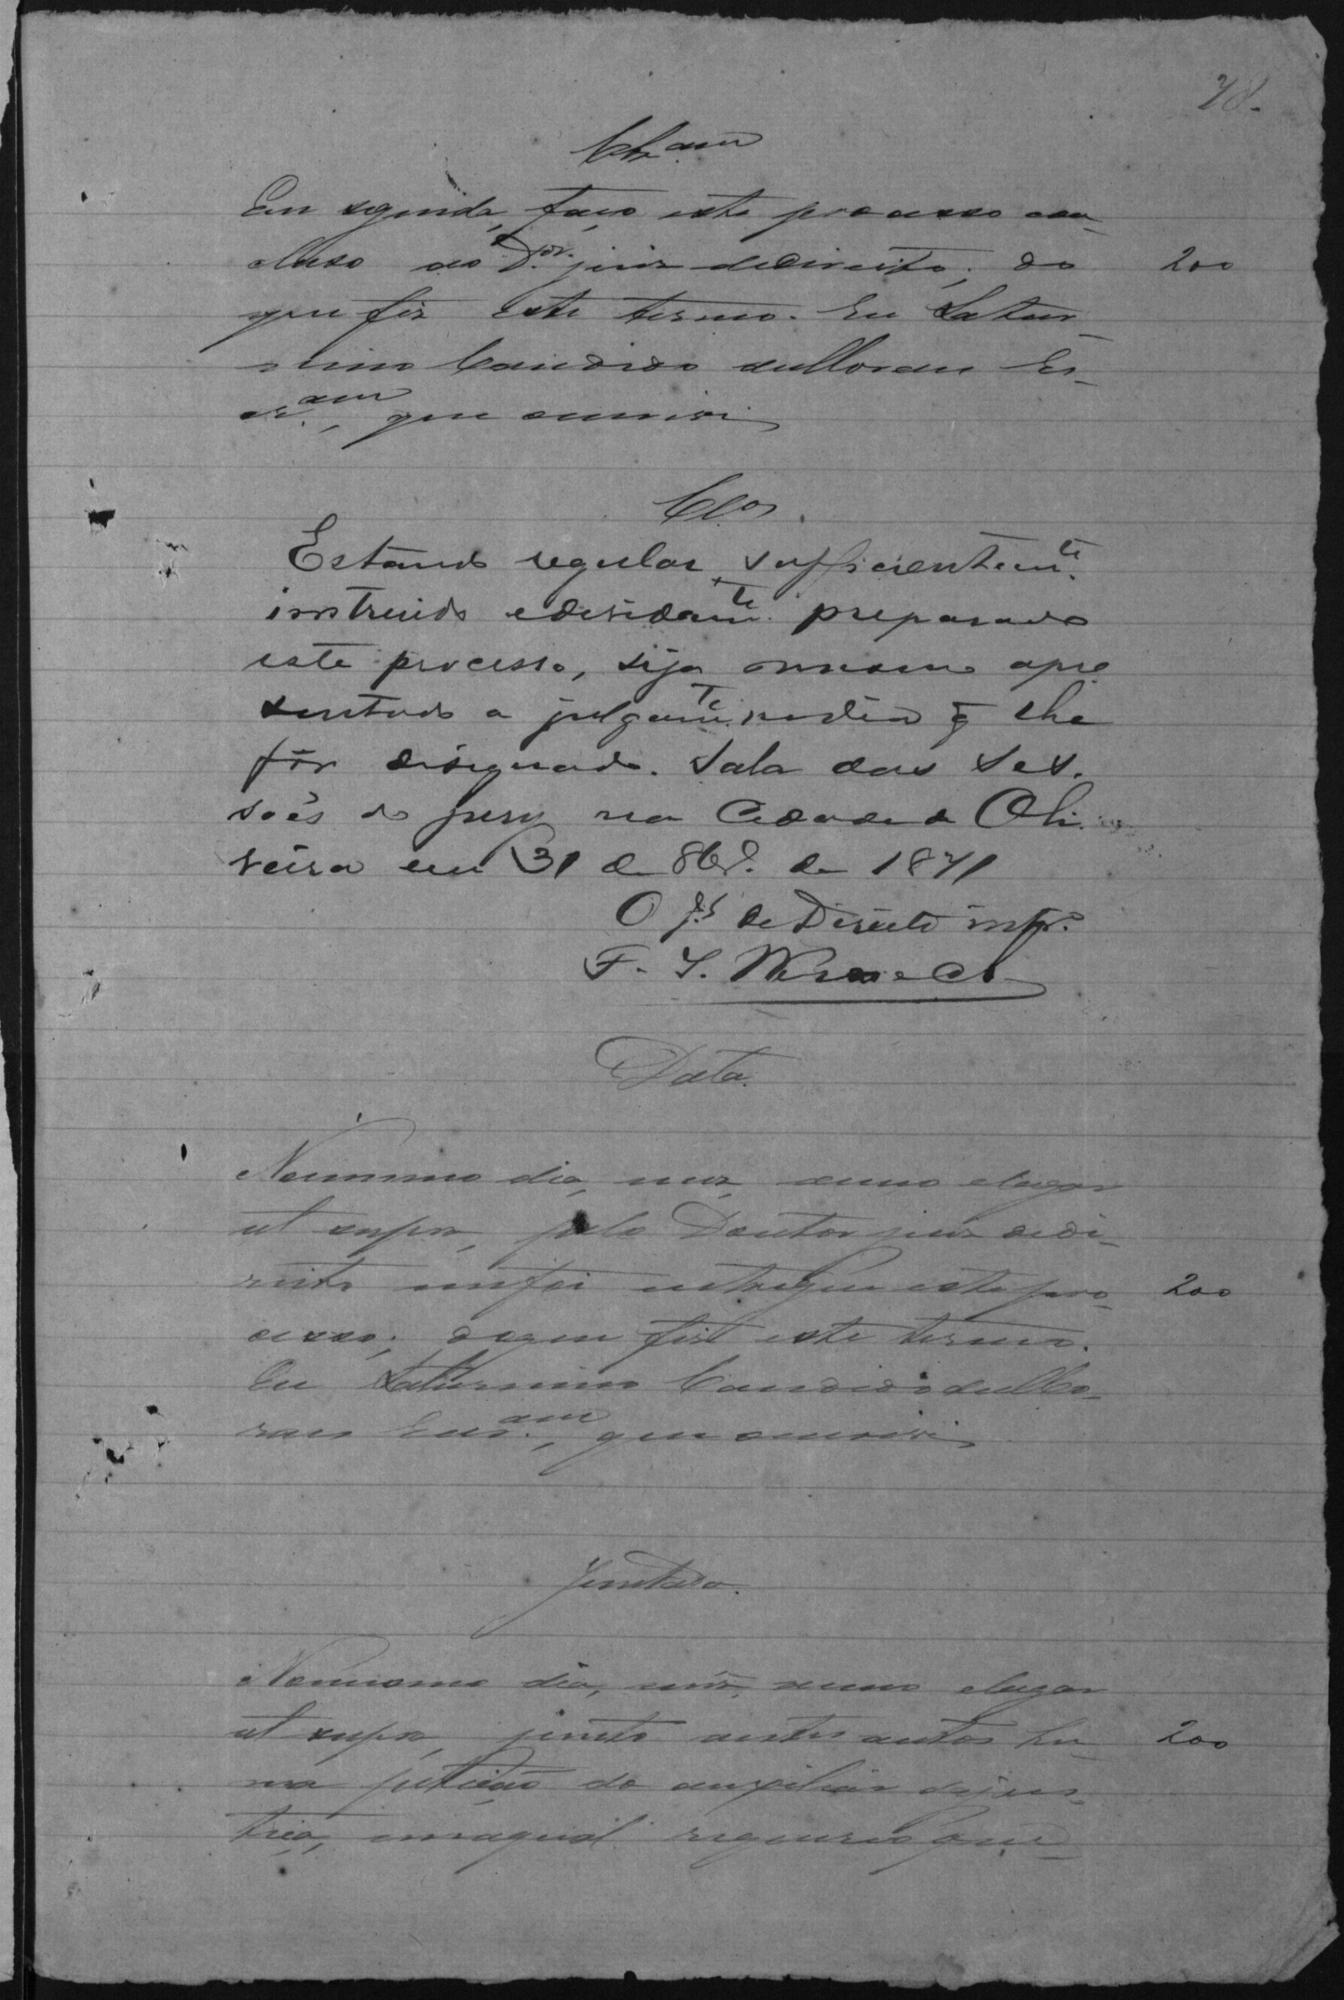 78.
Cls.am
Em seguida, faço este processo con-
cluso ao D.or juiz dedireito; do 200
que fiz este termo. Eu Satur-
nino Candido de Moraes Es-
cr.am, que escrevi
Cl.os
Estando regular, sufficientem.te
instruido e devidam.te preparado
este processo, seja o mesmo apre
sentado a julgam.to no dia q̄ lhe
fôr designado. Sala das Ses-
soẽs do jury na Cidade da Oli-
veira em 31 de 8br.o de 1871
O J.s de Direito int.o
F. J.
Data.
No mesmo dia, mez, anno elugar
ut supra, pelo Doutor juiz dedi-
reito me foi entregue este pro- 200
cesso; doque fiz este termo.
Eu Saturnino Candido de Mo-
raes Escr.am, que escrevi
Juntada.
No mesmo dia, mez, anno elugar
ut supra, junto a estes autos hu- 200
ma petição do auxiliar dajus-
tiça, na qual requereo que